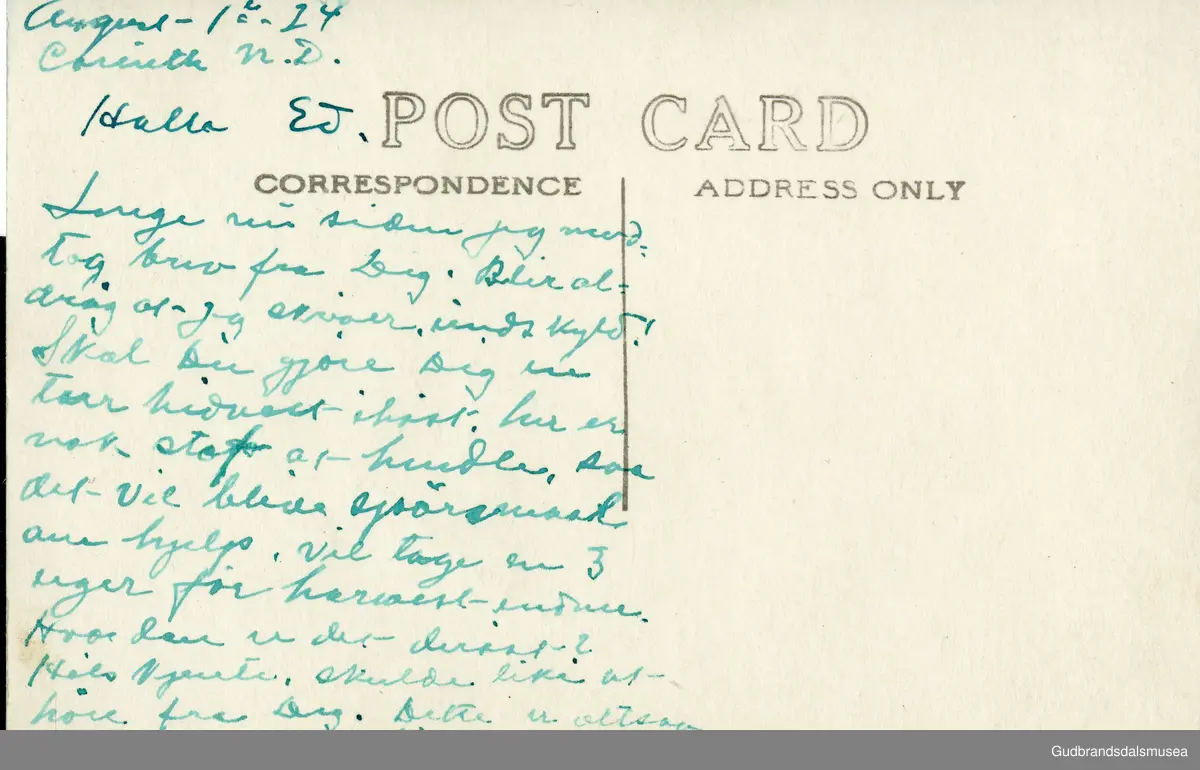 August - 1ste - 24
Corinth N.D.
Hallo Ed.
POST CARD
CORRESPONDENCE
ADDRESS ONLY
Lenge nu siden jeg mod-
tog brev fra Dig. Blir al-
drig at jeg skriver, undskyld!
Skal Du gjöre Dig en
tur hidvest ihöst. her er
nok at handle, saa
det vil blive spörsmaal
om hjelp, vil tage en 3
uger för harvest endnu.
Hvordan er det deröst?
Hils kjente. skulde like at
höre fra Dig. Dette er altsaa
Gudbrandsdalsmusea